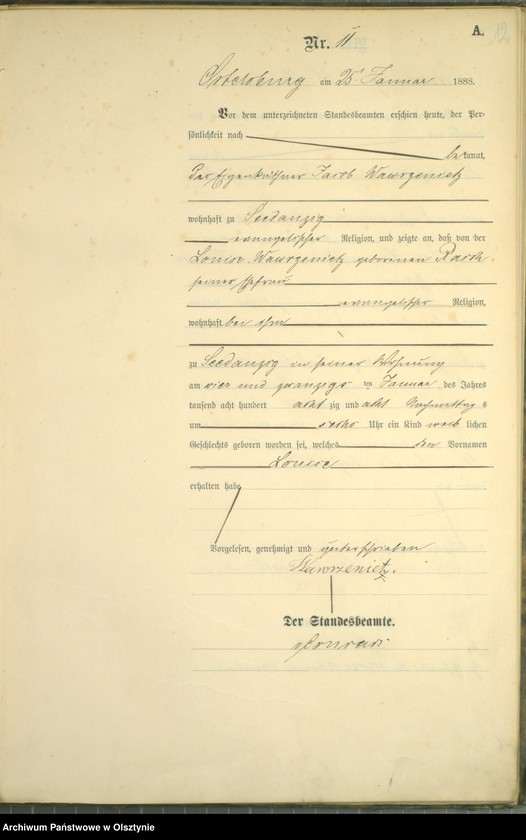 A.
12
Nr. 11
Ortelsburg am 25 Januar 1888.
Vor dem unterzeichneten Standesbeamten erschien heute, der Per-
sönlichkeit nach
bekannt,
der Eigenkäthner Jacob Wawrzenietz
wohnhaft zu Seedanzig
evangelischer Religion, und zeigte an, daß von der
Louise Wawrzenietz geborenen
seiner Ehefrau
evangelischer Religion,
wohnhaft bei ihm
zu Seedanzig in seiner Wohnung
am vier und zwanzigs ten Januar des Jahres
tausend acht hundert acht zig und acht Nachmittag s
um sechs Uhr ein Kind weib lichen
Geschlechts geboren worden sei, welches den Vornamen
Louise
erhalten habe
Vorgelesen, genehmigt und unterschrieben
Wawrzenietz.
Der Standesbeamte.
Archiwum Państwowe w Olsztynie